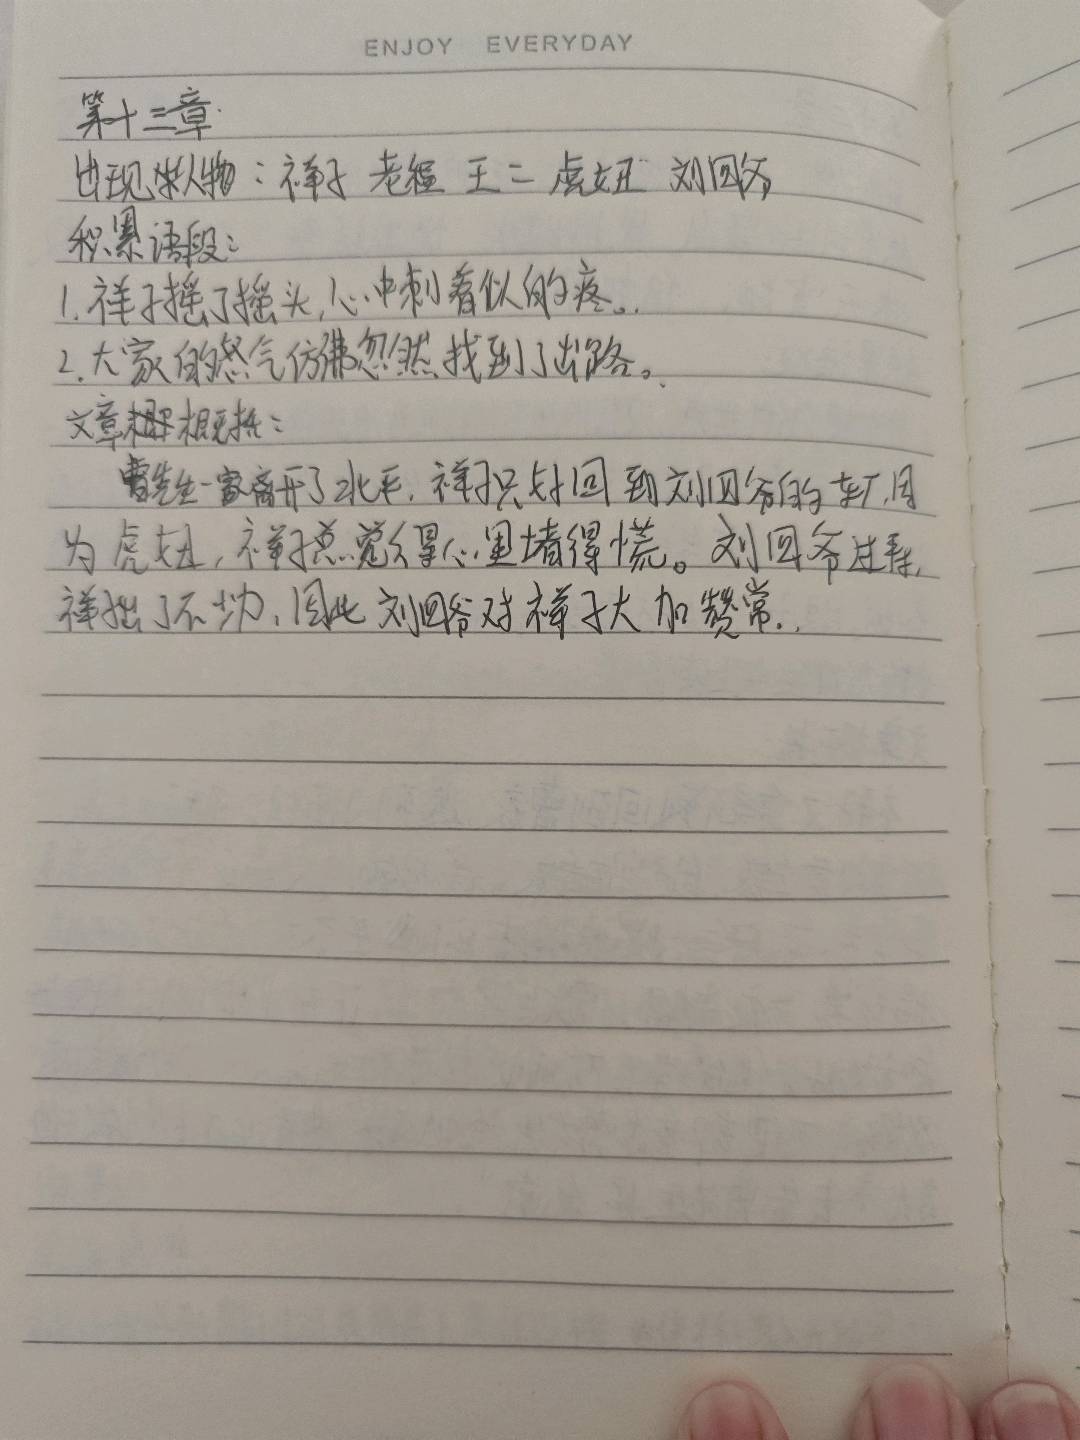 ENJOY EVERYDAY
第十三章
出现的人物：祥子 老程 王二 虎妞 刘四爷
积累语段：
1.祥子摇了摇头，心中刺着似的疼。
2.大家的怒气仿佛忽然找到了出路。
文章概括：
曹先生一家离开了北平，祥子只好回到刘四爷的车厂，因
为虎妞，祥子总觉得心里堵得慌。刘四爷过寿，
祥出了不少力，因此刘四爷对祥子大加赞常。